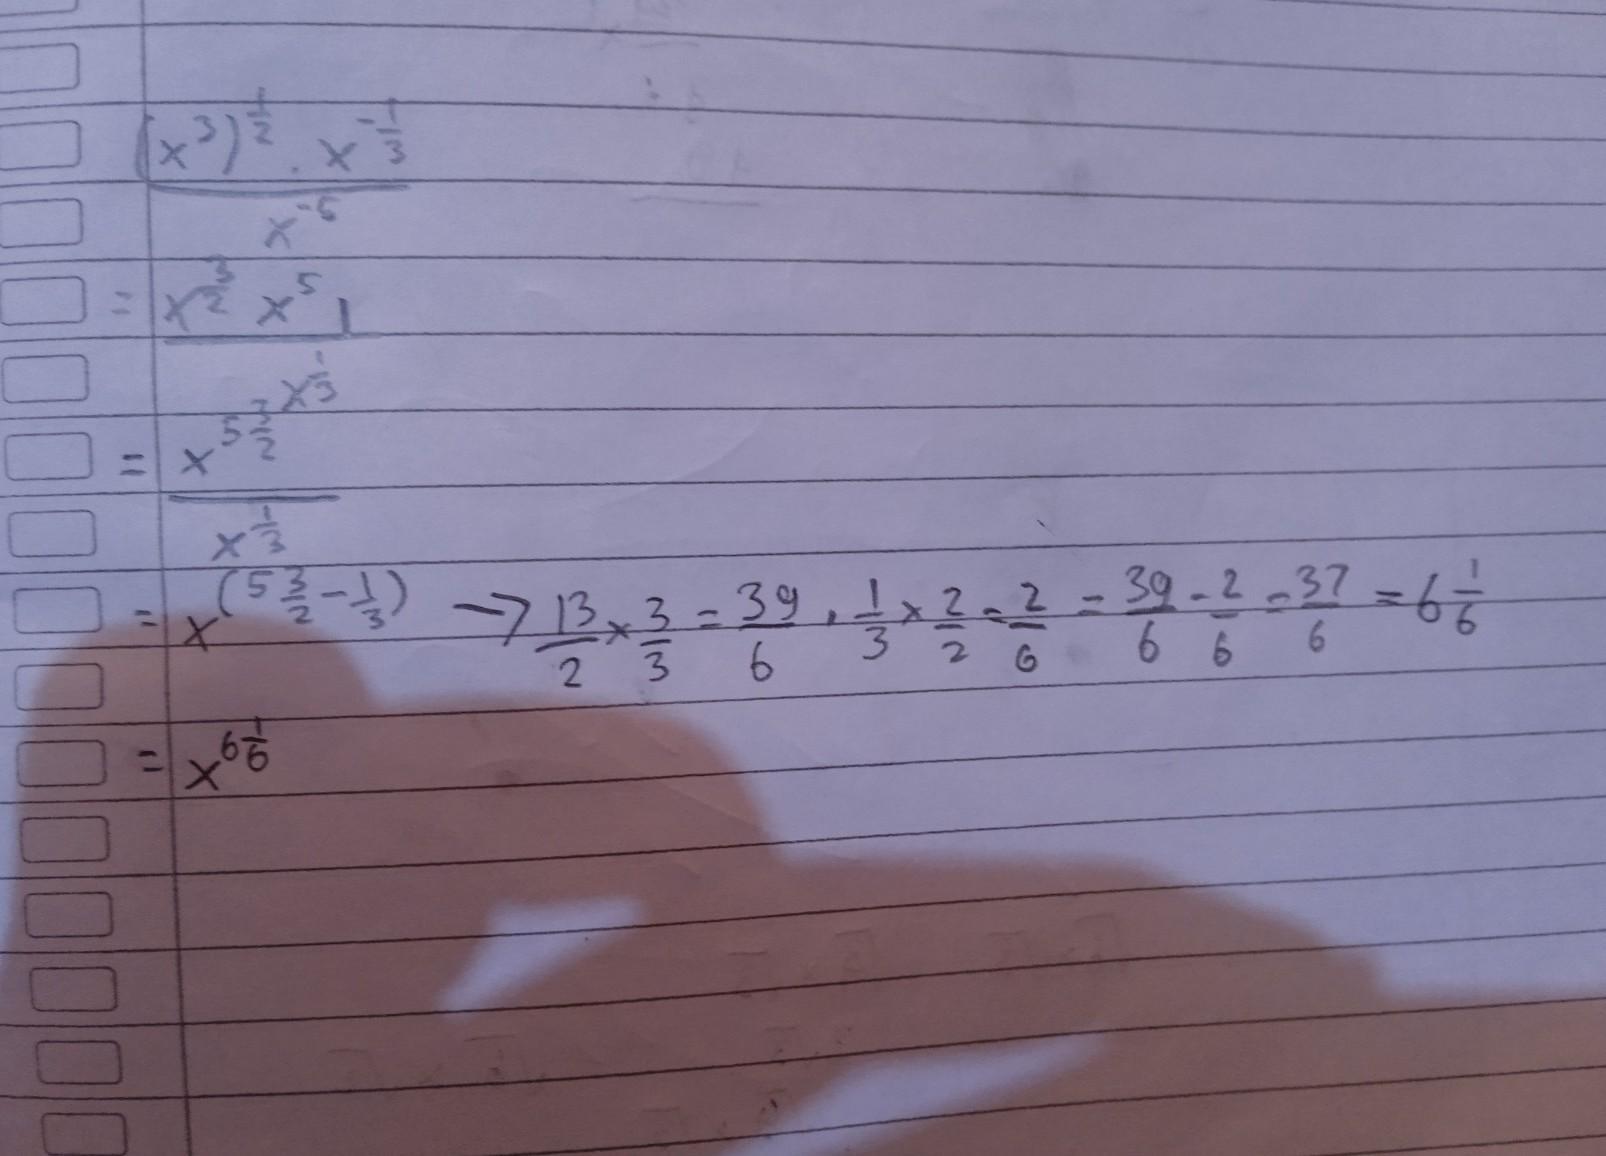 (x³)^½ . x^-⅓
x^-5
= x^3/2 x^5 1
x^1/3
= x^5 3/2
x^1/3
= x^(5 3/2 - 1/3) → 13/2 × 3/3 = 39/6 , 1/3 × 2/2 = 2/6 = 39/6 - 2/6 = 37/6 = 6 1/6
= x^6 1/6